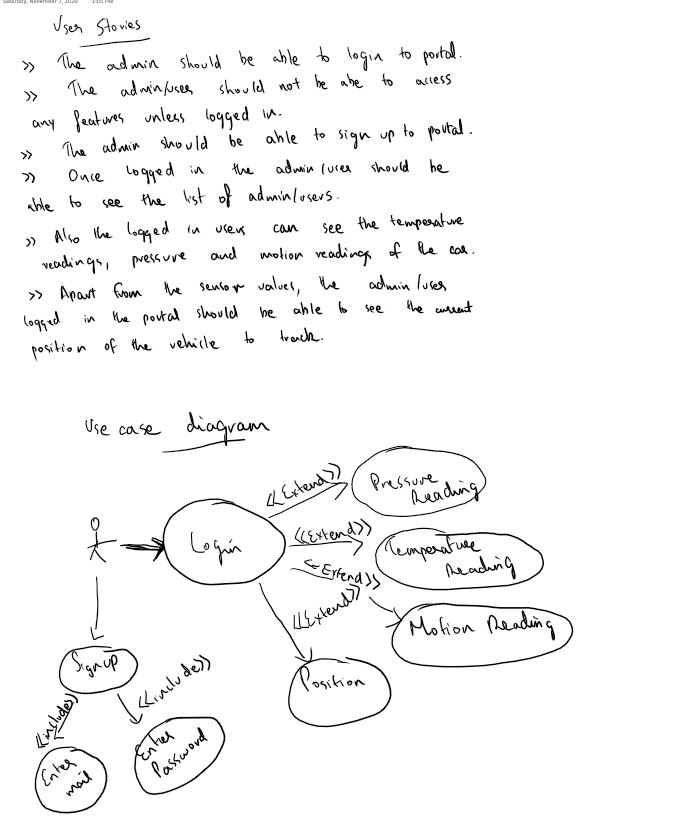 Saturday, November 7, 2020 1:05 PM
User Stories
>> The admin should be able to login to portal.
>> The admin/user should not be abe to access
any features unless logged in.
>> The admin should be able to sign up to portal.
>> Once logged in the admin/user should be
able to see the list of admin/users.
>> Also the logged in users can see the temperature
readings, pressure and motion readings of the car.
>> Apart from the sensor values, the admin/user
logged in the portal should be able to see the current
position of the vehicle to track.
Use case diagram
<<Extend>>
Pressure
Reading
Login
<<Extend>>
Temperature
Reading
<<Extend>>
<<Extend>>
Motion Reading
Signup
<<include>>
Position
<<include>>
Enter
Password
Enter
mail